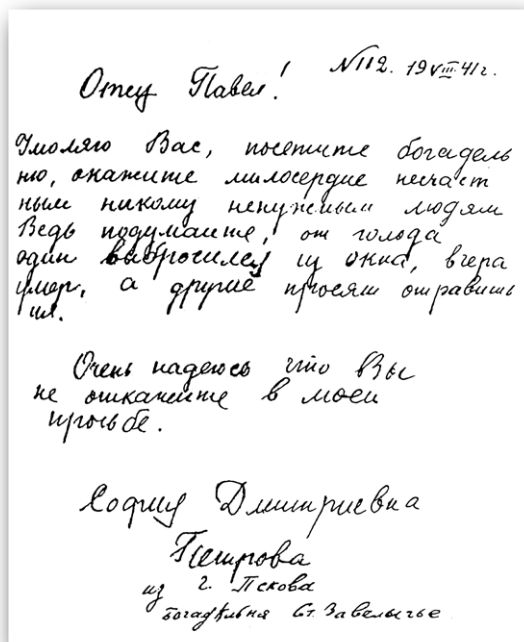 N112. 19 VIII 41 г.
Отец Павел!
Умоляю Вас, посетите богадель
ню, окажите милосердие несчаст
ным никому ненужным людям
Ведь подумайте, от голода
один выбросился из окна, вчера
умер, а другие просят отравить
их.
Очень надеюсь что Вы
не откажите в моей
просьбе.
София Дмитриевна
Петрова
из г. Пскова
богадѣльня Ст. Завеличье